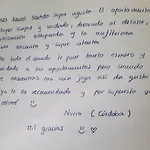 hemos estado super agusto. El apartamento
super limpio y cuidado, decorado al detalle,
ubicación estupenda y la anfitriona
un encanto y super atenta.
todo el mundo le pone tanto esmero y
cuidado a sus apartamentos pero cuando
encuentras con una joya así da gusto
ya lo he recomendado y por supuesto
volveré
Nuria (Córdoba)
Mil gracias